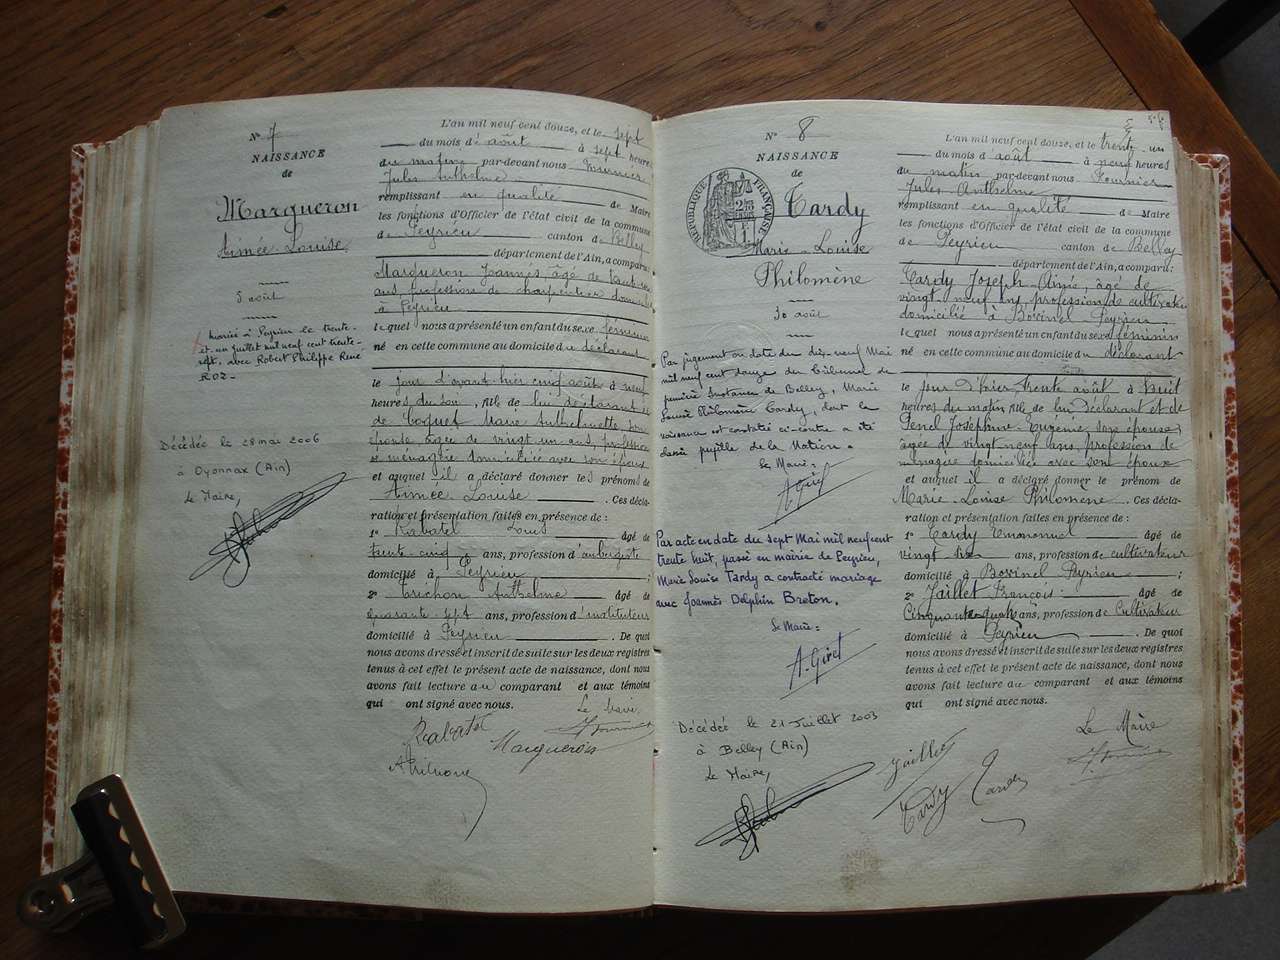 N° 7
NAISSANCE
de
Margueron
Aimée Louise
5 août
Mariée à Peyrieu le trente-
et-un juillet mil neuf cent trente-
sept avec Robert Philippe René
ROZ-
Décédée le 28 mai 2006
à Oyonnax (Ain)
Le Maire,
L'an mil neuf cent douze, et le sept
du mois d'août à sept heures
du matin par-devant nous Fournier
Jules Anthelme
remplissant en qualité de Maire
les fonctions d'Officier de l'état civil de la commune
de Peyrieu canton de Belley
département de l'Ain, a comparu:
Margueron Joannès, âgé de
ans, profession de charpentier domicilié
à Peyrieu
lequel nous a présenté un enfant du sexe féminin
né en cette commune au domicile du déclarant
le jour d'avant hier cinq août à neuf
heures du soir, fille de lui déclarant et
de Coquet Marie Anthelmette son
épouse âgée de vingt un ans, profession
de ménagère domiciliée avec son époux
et auquel il a déclaré donner les prénoms de
Aimée Louise. Ces décla-
ration et présentation faites en présence de:
1° Rabatel Louis âgé de
trente-cinq ans, profession d'aubergiste
domicilié à Peyrieu;
2° Trichon Anthelme âgé de
quarante sept ans, profession d'instituteur
domicilié à Peyrieu. De quoi
nous avons dressé et inscrit de suite sur les deux registres
tenus à cet effet le présent acte de naissance, dont nous
avons fait lecture au comparant et aux témoins
qui ont signé avec nous.
Le Maire
Rabatel
Margueron
N° 8
NAISSANCE
de
RÉPUBLIQUE FRANÇAISE
Tardy
Marie-Louise
Philomène
30 août
Par jugement en date du dix-neuf Mai
mil neuf cent du tribunal de
première Instance de Belley, Marie
Louise Philomène Tardy, dont la
naissance est constatée ci-contre a été
pupille de la Nation.
Le Maire:
A. Giret
Par acte en date du sept Mai mil neuf cent
trente huit, passé en mairie de Peyrieu,
Marie Louise Tardy a contracté mariage
avec Joannès Delphin Breton.
Le Maire:
A. Giret
Décédée le 21 Juillet 2003
à Belley (Ain)
Le Maire,
L'an mil neuf cent douze, et le trente-un
du mois d'août à neuf heures
du matin par-devant nous Fournier
Jules Anthelme
remplissant en qualité de Maire
les fonctions d'Officier de l'état civil de la commune
de Peyrieu canton de Belley
département de l'Ain, a comparu:
Tardy Joseph-Aimé, âgé de
vingt neuf ans profession de cultivateur
domicilié à Bovinel Peyrieu
lequel nous a présenté un enfant du sexe féminin
né en cette commune au domicile du déclarant
le jour d'hier trente août à huit
heures du matin fille de lui déclarant et de
Penel Joséphine-Eugénie son épouse
âgée de vingt neuf ans, profession de
ménagère domiciliée avec son époux
et auquel il a déclaré donner le prénom de
Marie-Louise Philomène. Ces décla-
ration et présentation faites en présence de:
1° Tardy âgé de
vingt ans, profession de cultivateur
domicilié à Bovinel Peyrieu;
2° Jaillet François âgé de
Cinquante quatre ans, profession de Cultivateur
domicilié à Peyrieu. De quoi
nous avons dressé et inscrit de suite sur les deux registres
tenus à cet effet le présent acte de naissance, dont nous
avons fait lecture au comparant et aux témoins
qui ont signé avec nous.
Le Maire
Jaillet
Tardy
Tardy